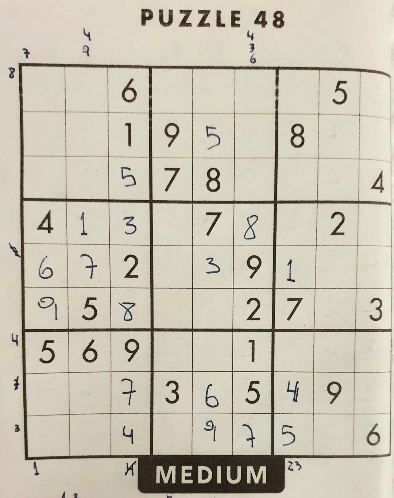 PUZZLE 48
7 4 4
9 3
6
8 6 5
1 9 5 8
5 7 8 4
4 1 3 7 8 2
6 7 2 3 9 1
9 5 8 2 7 3
4 5 6 9 1
7 7 3 6 5 4 9
3 4 9 7 5 6
1 23
MEDIUM